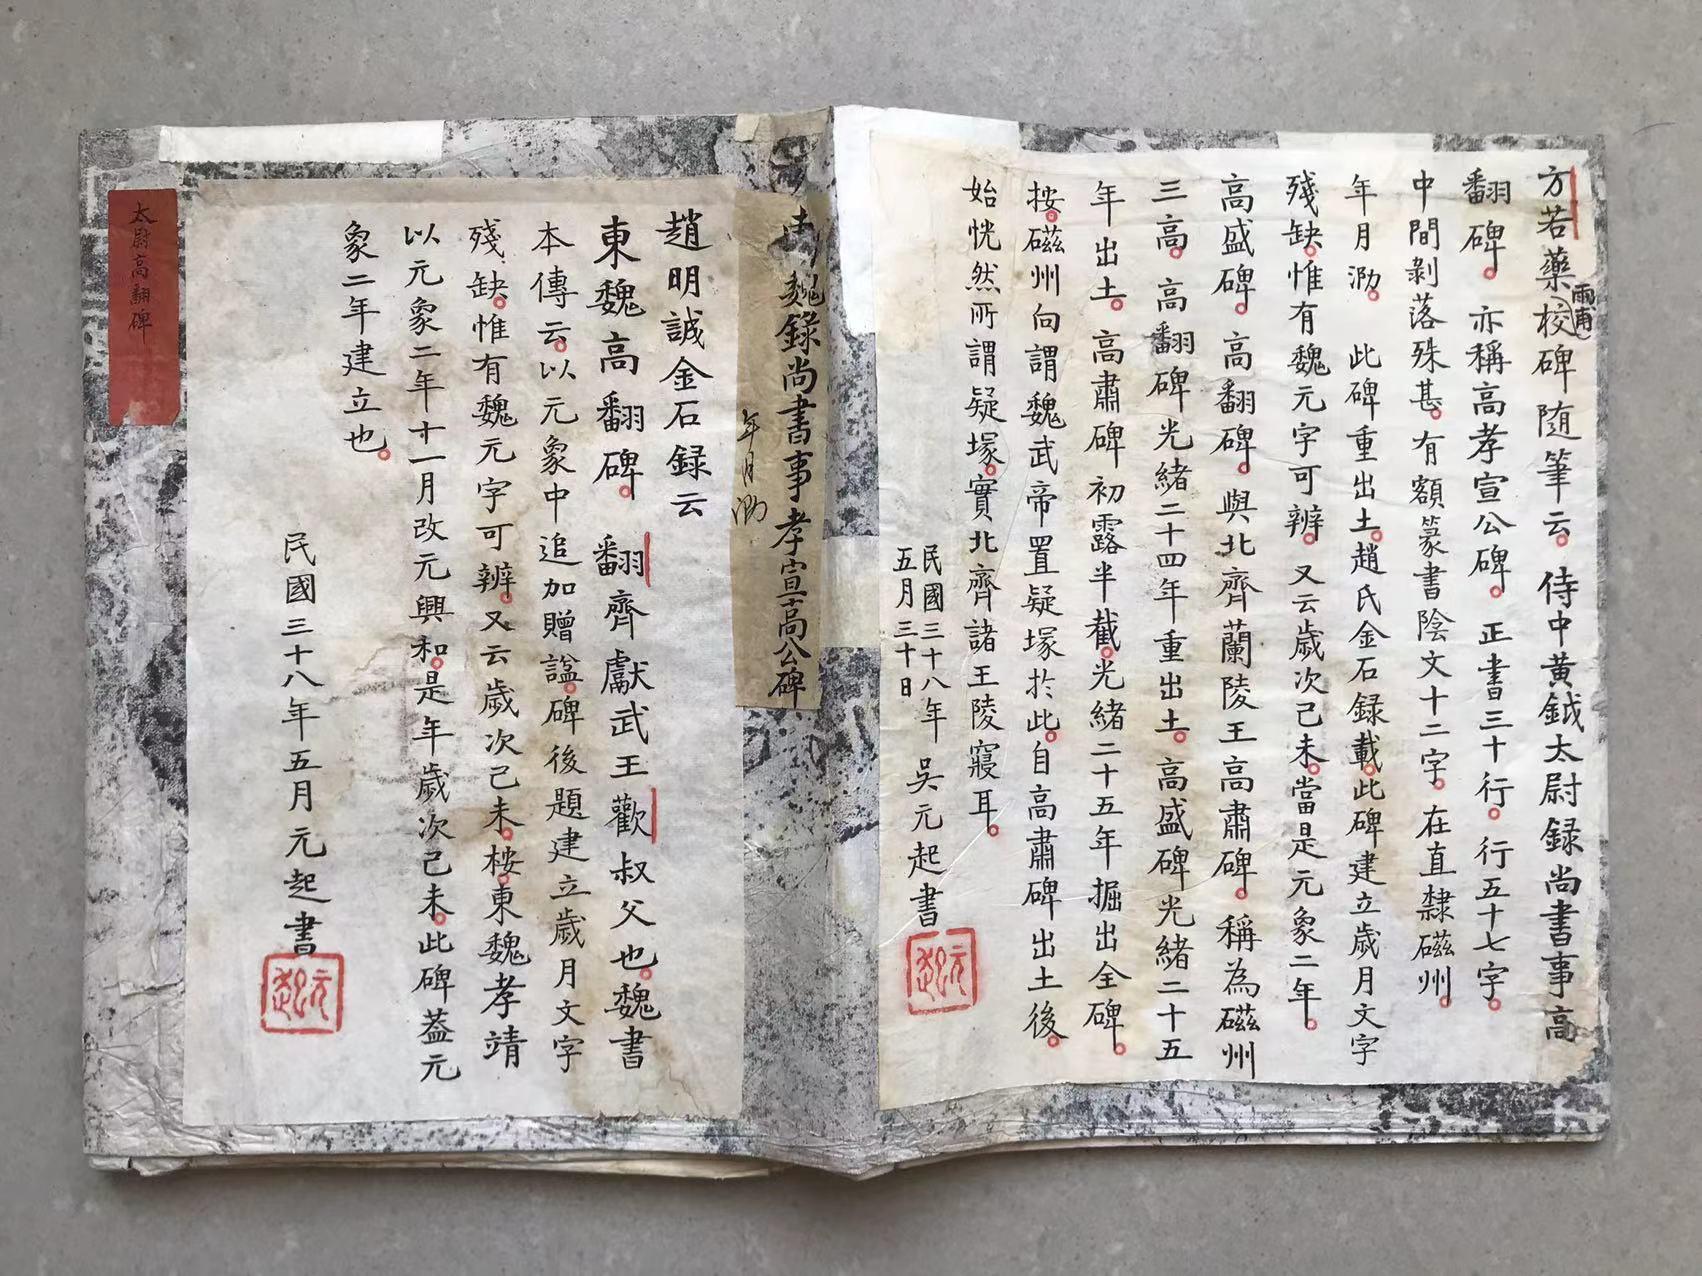 方若藥雨甫校碑隨筆云侍中黃鉞太尉録尚書事高
翻碑亦稱高孝宣公碑正書三十行行五十七字
中間剝落殊甚有額篆書陰文十二字在直隸磁州
年月泐 此碑重出土趙氏金石録載此碑建立歲月文字
殘缺惟有魏元字可辨又云歲次己未當是元象二年
高盛碑高翻碑與北齊蘭陵王高肅碑稱為磁州
三高高翻碑光緒二十四年重出土高盛碑光緒二十五
年出土高肅碑初露半截光緒二十五年掘出全碑
按磁州向謂魏武帝置疑塚於此自高肅碑出土後
始恍然所謂疑塚實北齊諸王陵寢耳
民國三十八年
五月三十日
吳元起書
元起
魏錄尚書事孝宣高公碑
年月泐
趙明誠金石録云
東魏高翻碑 翻齊獻武王歡叔父也魏書
本傳云以元象中追加贈諡碑後題建立歲月文字
殘缺惟有魏元字可辨又云歲次己未桉東魏孝靖
以元象二年十一月改元興和是年歲次己未此碑蓋元
象二年建立也
民國三十八年五月元起書
元起
太尉高翻碑